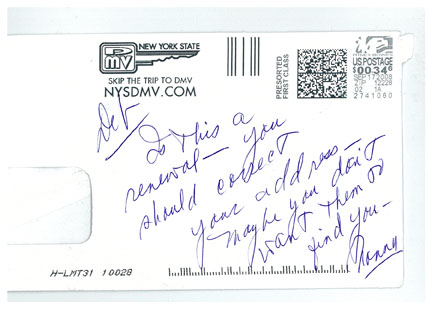 NEW YORK STATE
DMV
SKIP THE TRIP TO DMV
NYSDMV.COM
PRESORTED
FIRST CLASS
US POSTAGE
$00.34⁶
02 1A
Deb
Is this a
renewal — you
should correct
your address —
Maybe you don't
want them to
find you —
H-LMT31 10028